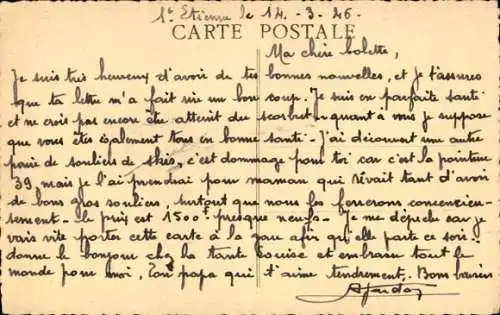 St Etienne le 14-3-46
CARTE POSTALE
Ma chère Colette,
Je suis très heureux d'avoir de tes bonnes nouvelles, et je t'assures
que ta lettre m'a fait rire un bon coup. Je suis en parfaite santé
et ne crois pas encore être atteint du scorbut - quant à vous je suppose
que vous êtes également tous en bonne santé - J'ai découvert une autre
paire de souliers de skis, c'est dommage pour toi car c'est la pointure
39 mais je l'ai prendrai pour maman qui rêvait tant d'avoir
de bons gros souliers, surtout que nous les foncerons consciencieu-
sement - le prix est 1500f presque neufs - Je me dépêche car je
vais vite porter cette carte à la gare afin qu'elle parte ce soir.
donne le bonjour chez la tante Louise et embrasse tout le
monde pour moi. Ton papa qui t'aime tendrement. Bons baisers